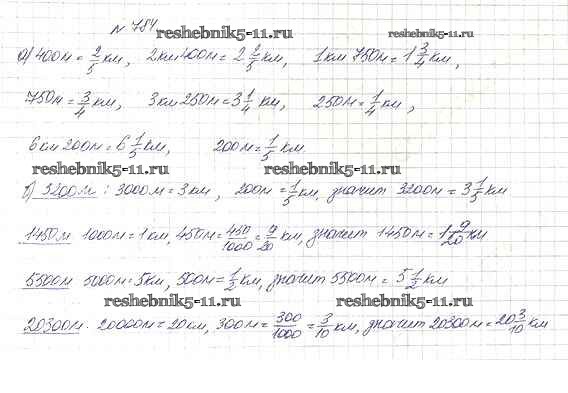 № 784 reshebnik5-11.ru reshebnik5-11.ru
а) 400м = 2/5 км, 2км 400м = 2 2/5 км, 1км 750м = 1 3/4 км,
750м = 3/4 км, 3км 250м = 3 1/4 км, 250м = 1/4 км,
6км 200м = 6 1/5 км, 200м = 1/5 км.
reshebnik5-11.ru reshebnik5-11.ru
б) 3200м : 3000м = 3км, 200м = 1/5 км, значит 3200м = 3 1/5 км
1450м 1000м = 1км, 450м = 450/1000 = 9/20 км, значит 1450м = 1 9/20 км
5500м 5000м = 5км, 500м = 1/2 км, значит 5500м = 5 1/2 км
reshebnik5-11.ru reshebnik5-11.ru
20300м. 20000м = 20км, 300м = 300/1000 = 3/10 км, значит 20300м = 20 3/10 км